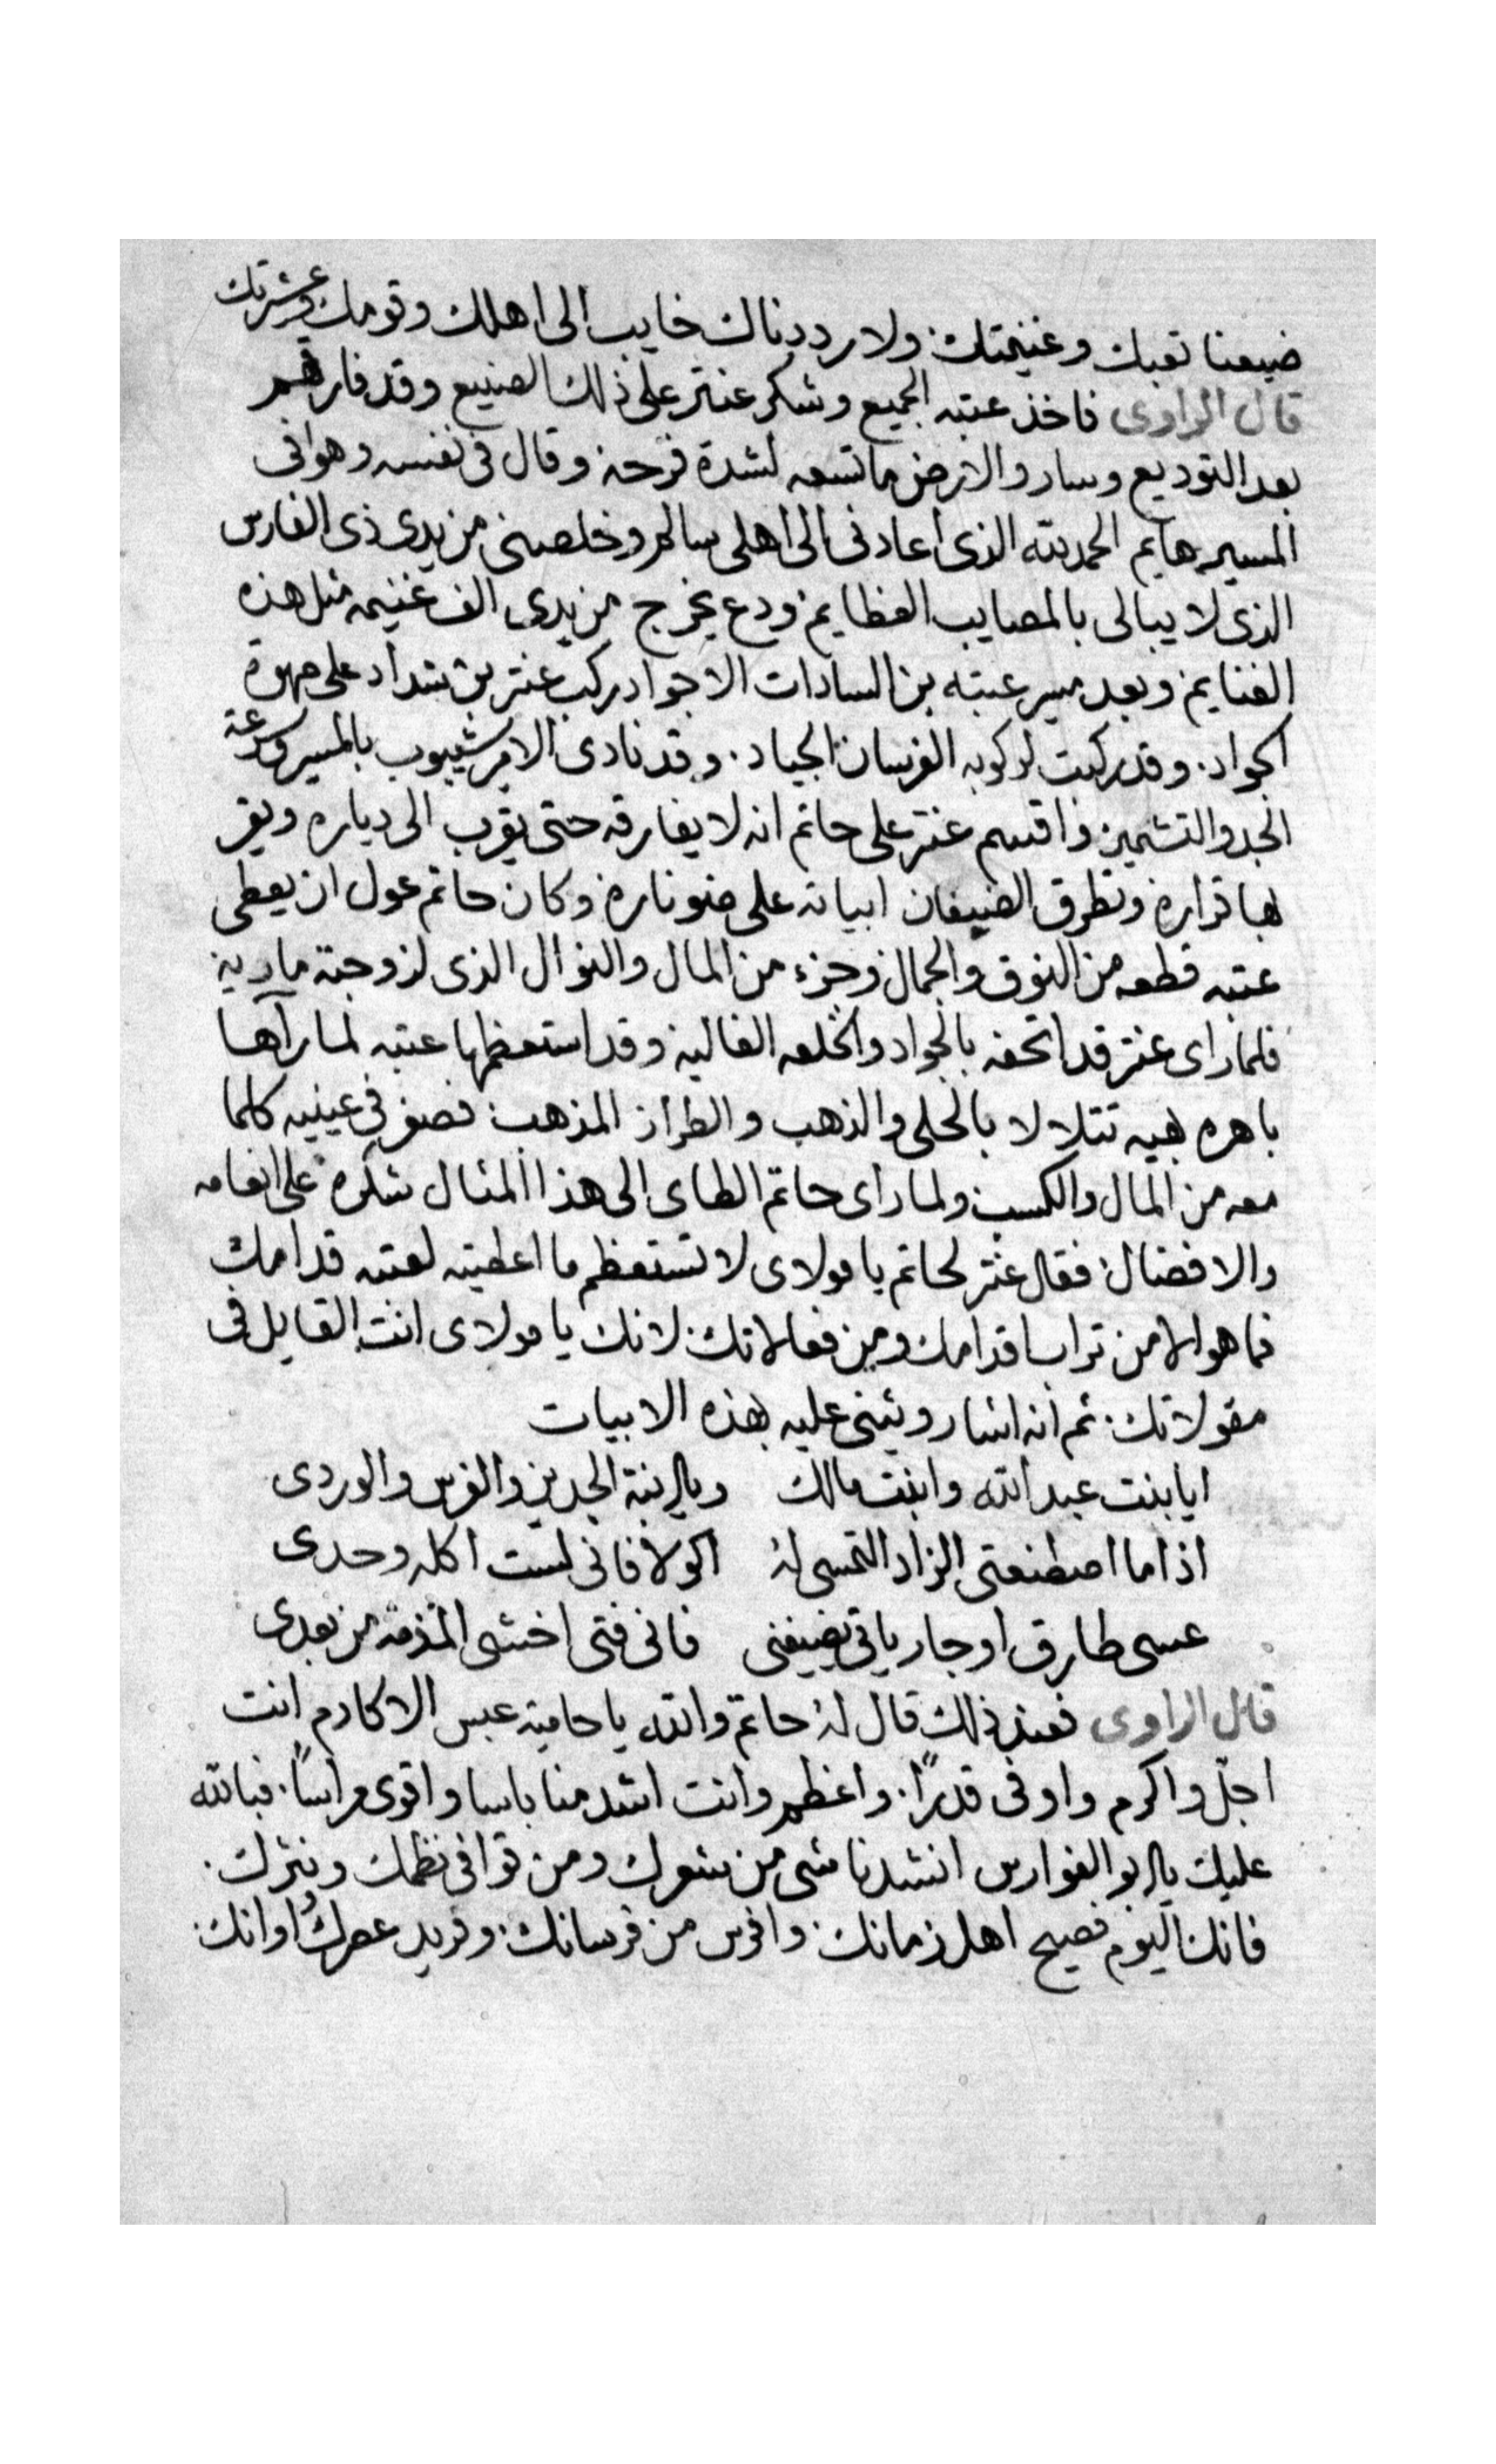 ضيعنا تعبك وغنيمتك ولا رددناك خايب الى اهلك وقومك وعشرتك
قال الراوى فاخذ عتبه الجميع وشكر عنتر على ذلك الصنيع وقد فارقهم
بعد التوديع وسار والارض ما تسعه لشدة فرحه وقال فى نفسه وهوا فى
المسير هايم الحمد لله الذى اعادنى الى اهلى سالم وخلصنى من يدى ذى الفارس
الذى لا يبالى بالمصايب العظايم ودع يخرج من يدى الف غنيمه مثل هذه
الغنايم وبعد مسير عتبه بن السادات الاجواد ركب عنتر بن شداد على مهرة
الجواد. وقد ركبت لركوبه الفرسان الجياد. وقد نادى الامر شيبوب بالمسير وسرعة
الجد والتشمير واقسم عنتر على حاتم انه لا يفارقه حتى يقرب الى دياره ويقر
بها قراره وتطرق الضيفان ابياته على ضو ناره وكان حاتم عول ان يعطى
عتبه قطعه من النوق والجمال وجزء من المال والنوال الذى لزوجته مارية
فلما راى عنتر قد اتحفه بالجواد والخلعه الغاليه وقد استعظمها عتبه لما رآها
باهره بهيه تتلالا بالحلى والذهب والطراز المذهب فصغر فى عينيه كلما
معه من المال والكسب ولما راى حاتم الطاى الى هذا المثال شكره على انعامه
والافضال فقال عنتر لحاتم يا مولاى لا تستعظم ما اعطيته لعتبه قدامك
فما هو الا من تراب اقدامك ومن فعالاتك لانك يا مولاى انت القايل فى
مقولاتك. ثم انه اشار ويثنى عليه بهذه الابيات
ايا بنت عبد الله وابنت مالك ويا ابنة الجدين والفرس والوردى
اذا ما اصطنعتى الزاد التمسى لهُ اكولا فانى لست اكله وحدى
عسى طارق او جار ياتى يضيفنى فانى فتى اخشى المذمة من بعدى
قال الراوى فعند ذلك قال لهُ حاتم والله يا حامية عبس الاكارم انت
اجلّ واكرم واوفى قدرًا. واعظم وانت اشد منا باسا واقوى مراسًا. فبالله
عليك يا ابو الفوارس انشدنا شى من شعرك ومن قوافى نظمك ونثرك.
فانك اليوم فصيح اهل زمانك. وافرس من فرسانك. وفريد عصرك واوانك.